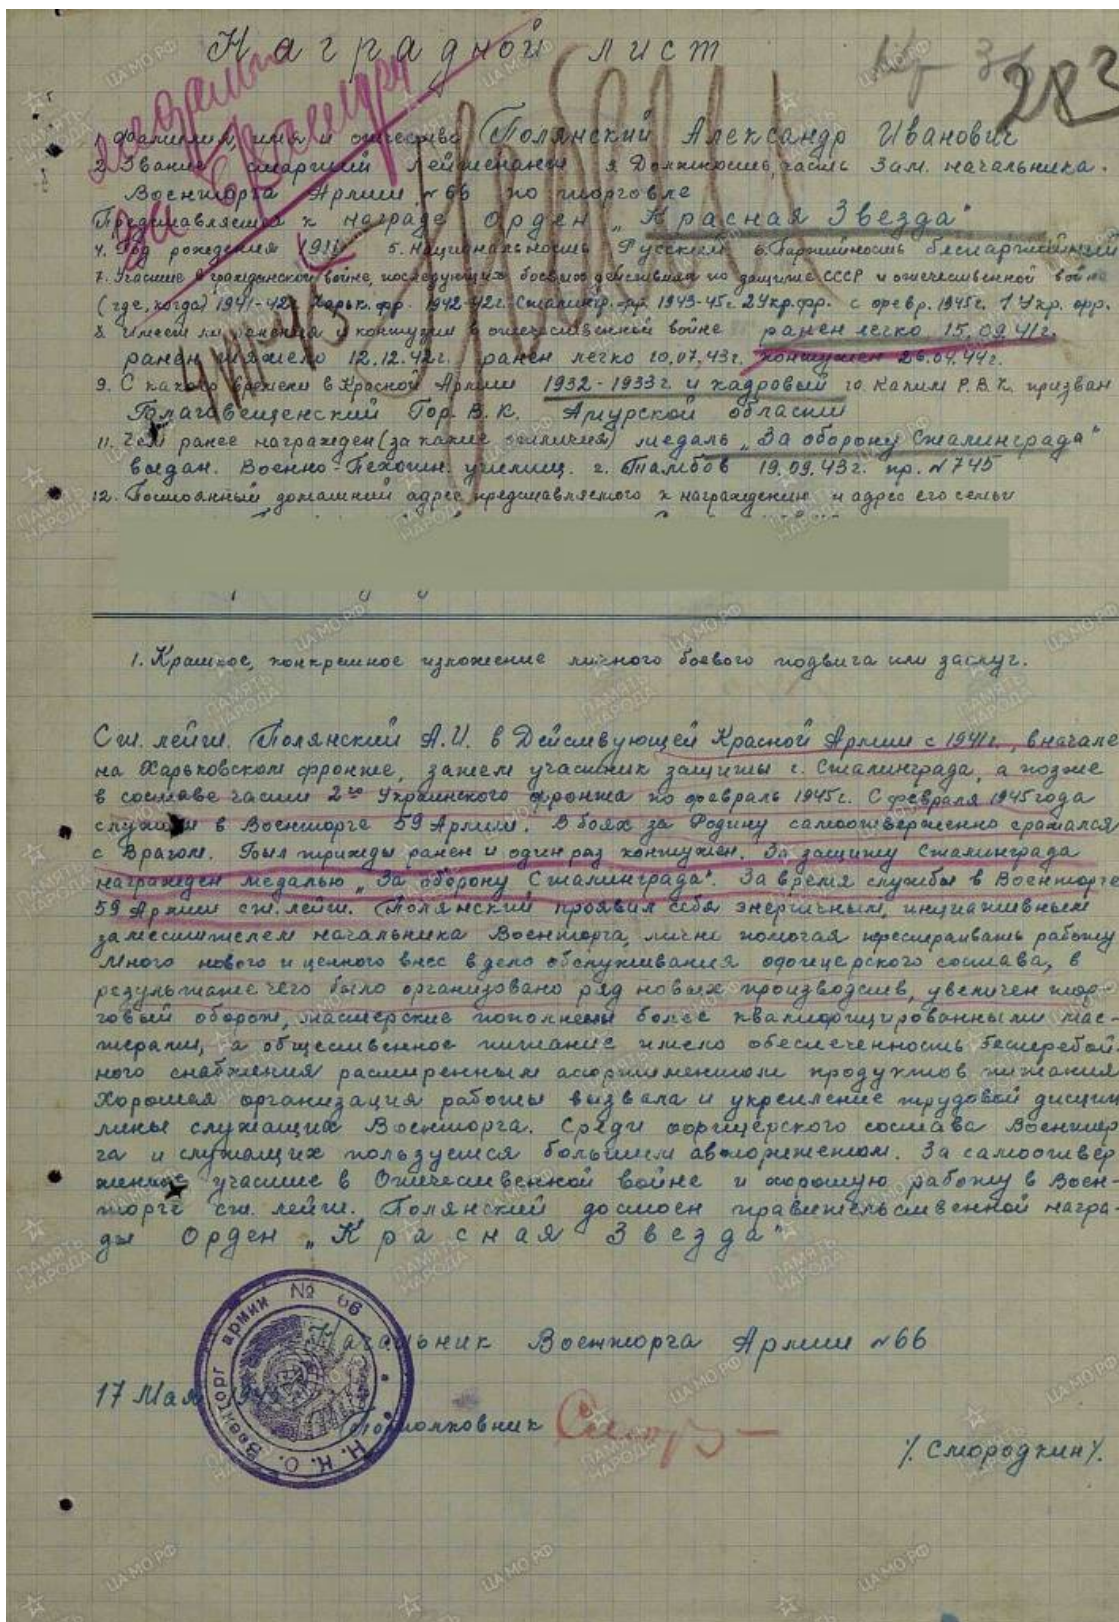 Наградной лист
283
1. Фамилия, имя и отчество Полянский Александр Иванович
2. Звание старший лейтенант 3. Должность, часть Зам. начальника
Военторга Армии №66 по торговле
Представляется к награде орден „Красная Звезда“
4. Год рождения 1911 5. Национальность Русский 6. Партийность беспартийный
7. Участие в гражданской войне, последующих боевых действиях по защите СССР и отечественной войне
(где, когда) 1941-42г Харьк. фр. 1942-42г. Сталингр. фр. 1943-45г. 2 Укр. фр. с февр. 1945г. 1 Укр. фр.
8. Имеет ли ранения и контузии в отечественной войне ранен легко 15.09.41г.
ранен тяжело 12.12.42г. ранен легко 10.07.43г. контужен 26.04.44г.
9. С какого времени в Красной Армии 1932-1933г. и кадровый 10. Каким Р.В.К. призван
Благовещенский Гор. В.К. Амурской области
11. Чем ранее награжден (за какие отличия) медаль „За оборону Сталинграда“
выдан. Военно-Пехотн. училищ. г. Тамбов 19.09.43г. пр. №745
12. Постоянный домашний адрес представляемого к награждению и адрес его семьи
1. Краткое, конкретное изложение личного боевого подвига или заслуг.
Ст. лейт. Полянский А.И. в Действующей Красной Армии с 1941г., вначале
на Харьковском фронте, затем участник защиты г. Сталинграда, а позже
в составе части 2го Украинского фронта по февраль 1945г. С февраля 1945 года
служит в Военторге 59 Армии. В боях за Родину самоотверженно сражался
с Врагом. Был трижды ранен и один раз контужен. За защиту Сталинграда
награжден медалью „За оборону Сталинграда“. За время службы в Военторге
59 Армии ст. лейт. Полянский проявил себя энергичным, инициативным
заместителем начальника Военторга, лично помогая перестраивать работу
Много нового и ценного внес в дело обслуживания офицерского состава, в
результате чего было организовано ряд новых производств, увеличен тор-
говый оборот, мастерские пополнены более квалифицированными мас-
терами, а общественное питание имело обеспеченность бесперебой-
ного снабжения расширенным асортиментом продуктов питания
Хорошая организация работы вызвала и укрепление трудовой дисцип
лины служащих Военторга. Среди офицерского состава Военторг
га и служащих пользуется большим авторитетом. За самоотвер
женное участие в Отечественной войне и хорошую работу в Воен-
торге ст. лейт. Полянский достоен правительственной награ-
ды Орден „Красная Звезда“
Начальник Военторга Армии №66
17 Мая
Подполковник
/. Смородкин /.
Н.К.О. Военторг армии № 66